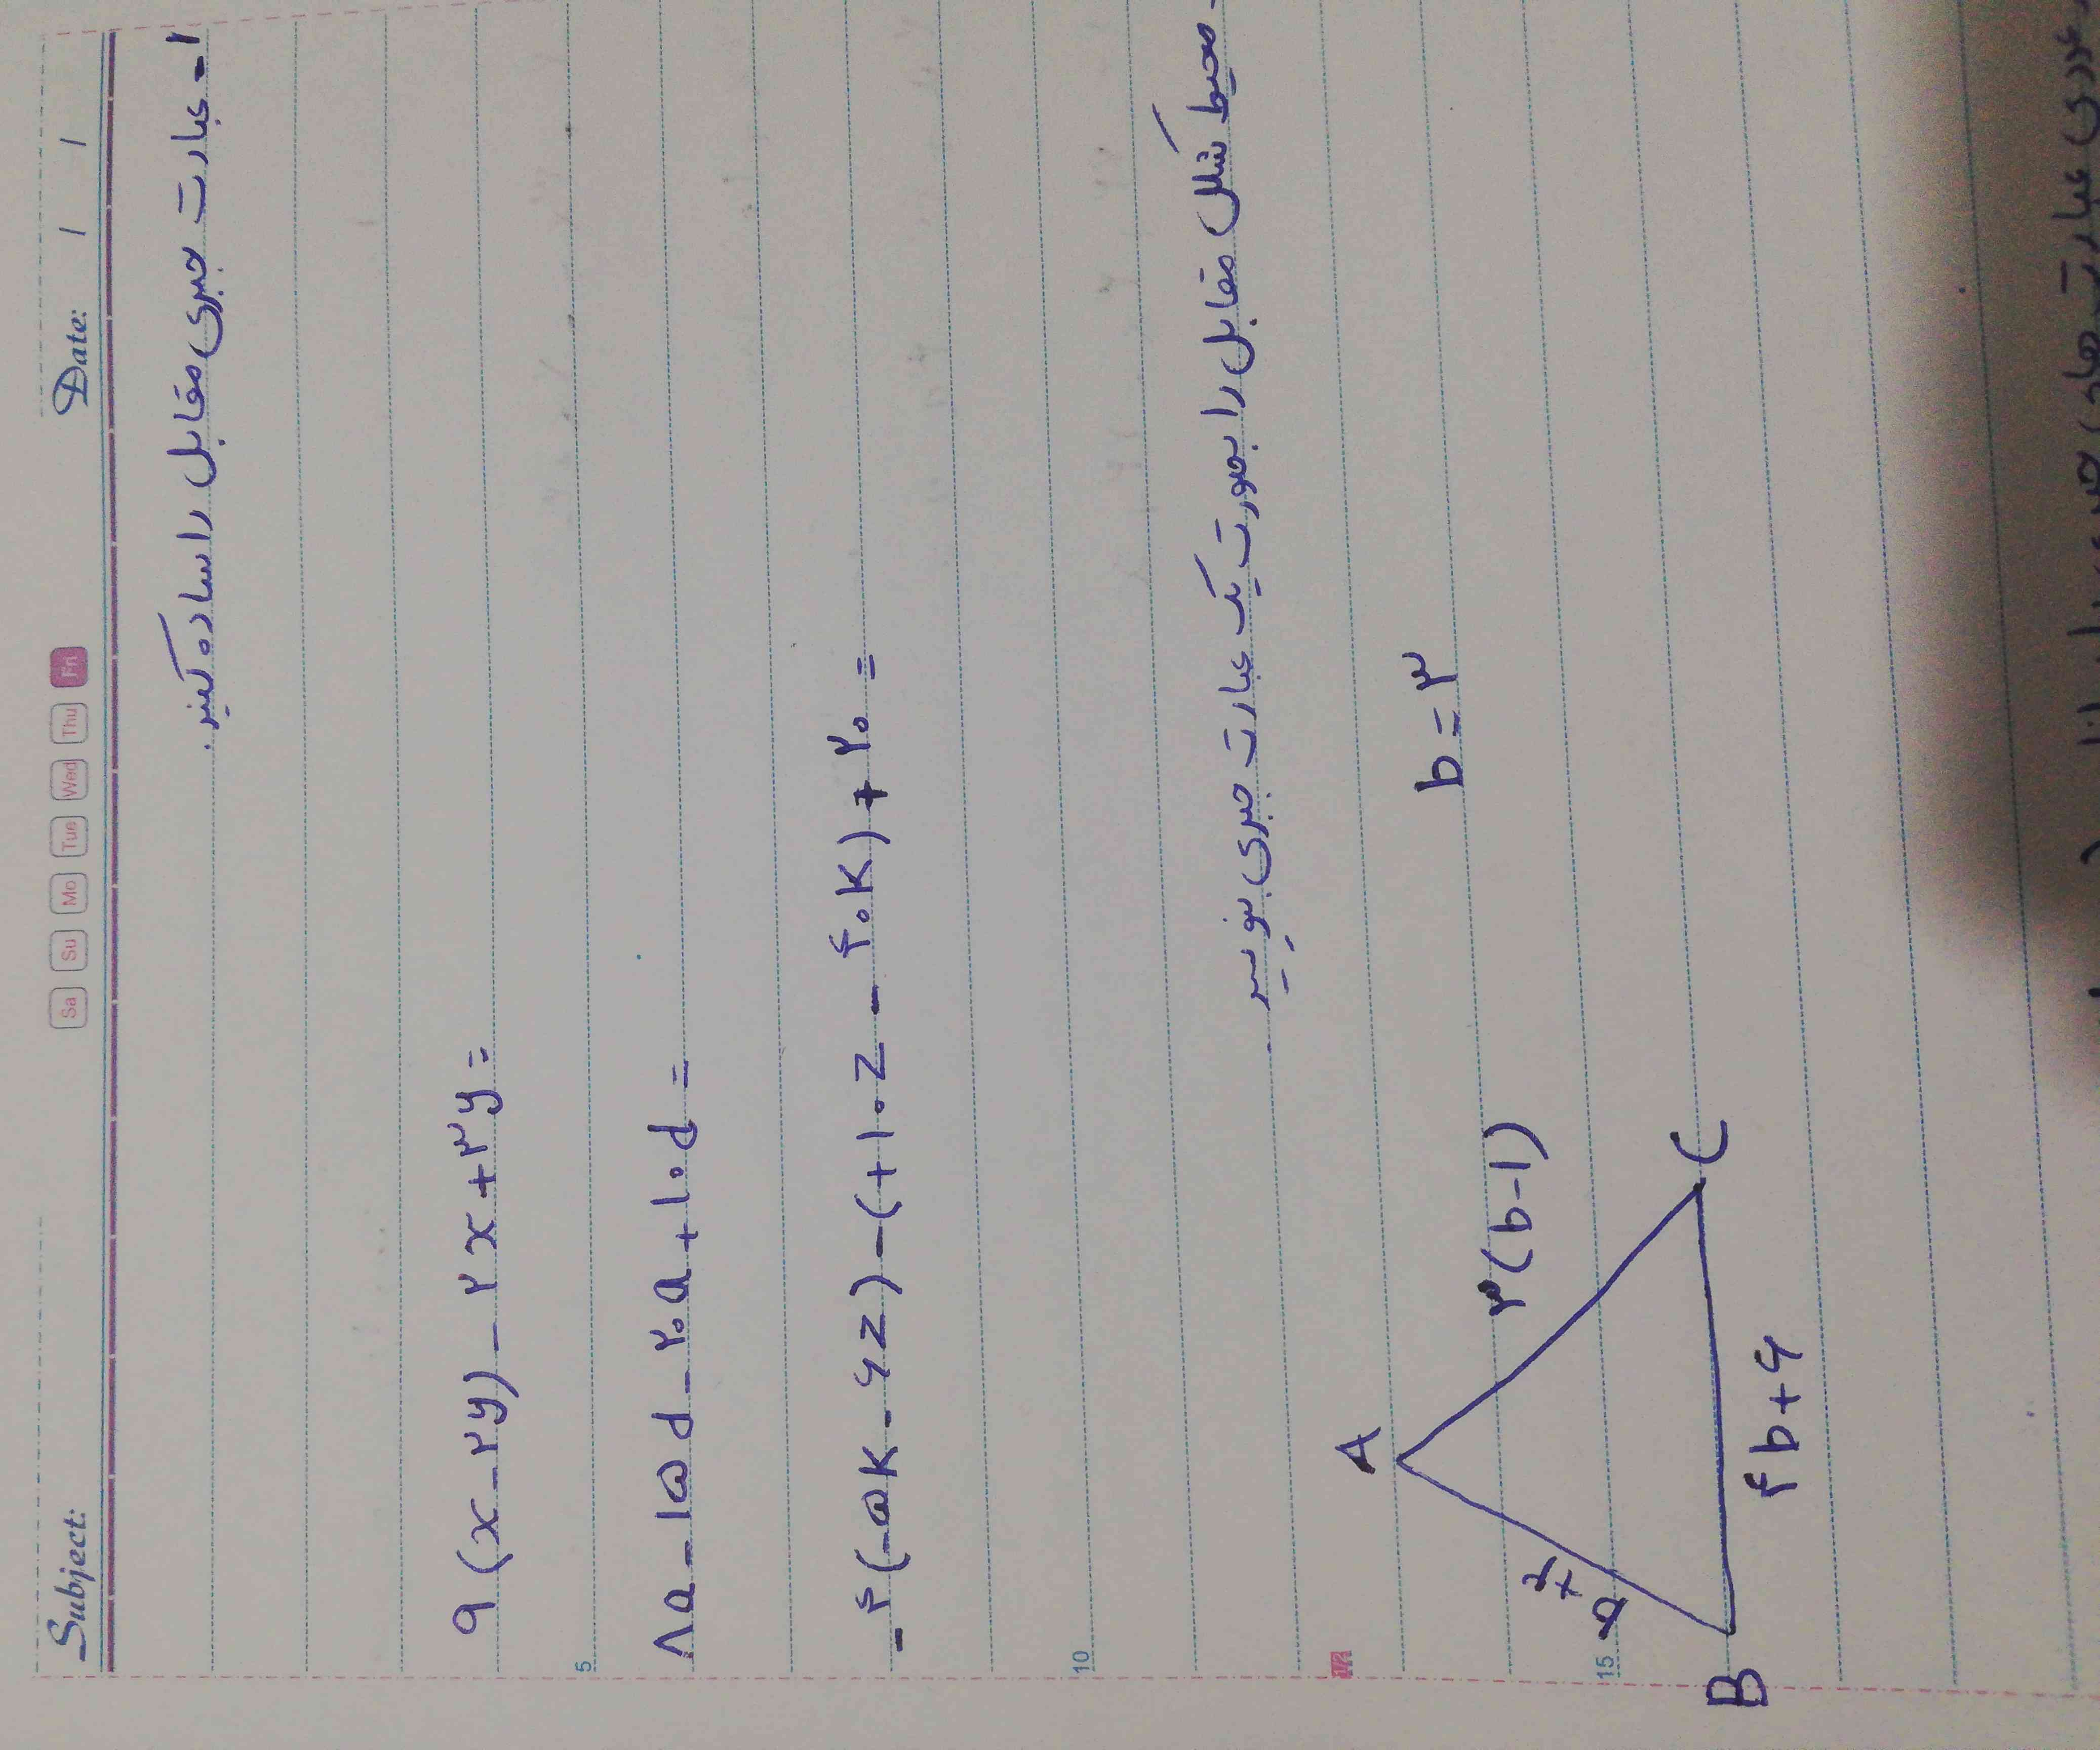 Subject: Sa Su Mo Tue Wed Thu Fri Date: / /
۱- عبارت جبری مقابل را ساده کنید.
۹(x-۲y)-۲x+۳y=
5
۸a-۱۵d-۲۰a+۱۰d=
-۴(-۵k-۶z)-(+۱۰z-۴۰k)+۲۰=
10
محیط شکل مقابل را بصورت یک عبارت جبری بنویسید.
b=۳
A
۳(b-۱)
15
B
C
۴b+۶
عبارت های